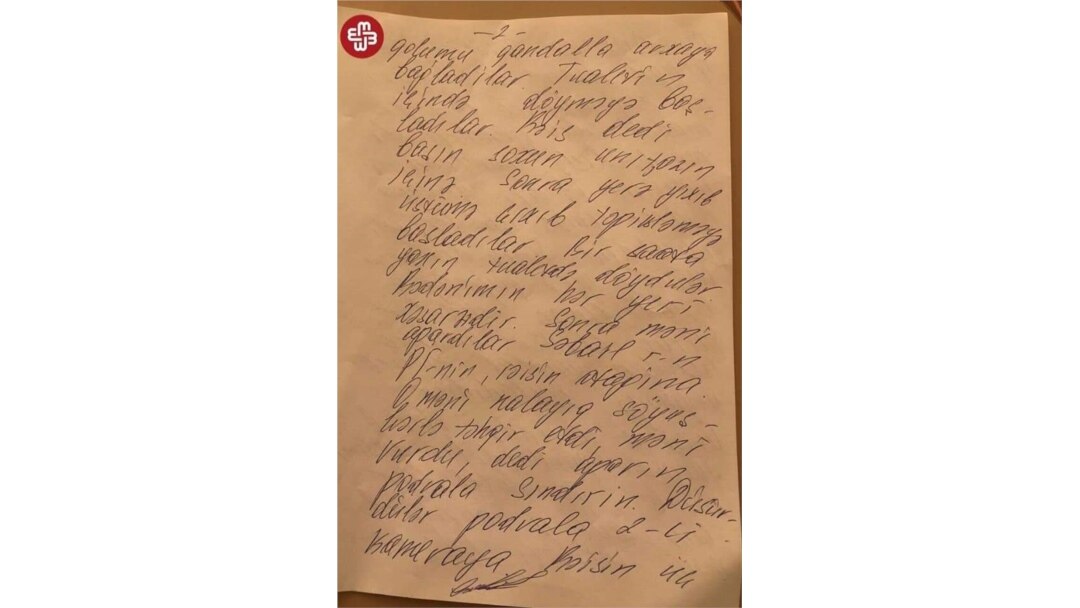 -2-
qolumu qandalla arxaya
bağladılar. Tualetin
içində döyməyə baş-
ladılar. Rəis dedi
başın soxun unitazın
içinə sonra yerə yıxıb
üstümə çıxıb təpikləməyə
başladılar Bir saata
yaxın tualetdə döydülər
Bədənimin hər yeri
xəsarətdir. Sonra məni
apardılar Səbail r-n
PŞ-nin, rəisin otağına.
O məni nalayiq söyüş-
lərlə təhqir etdi, məni
vurdu, dedi aparın
podvala sındırın. Düşür-
dülər podvala 2-ci
kameraya Rəisin üç